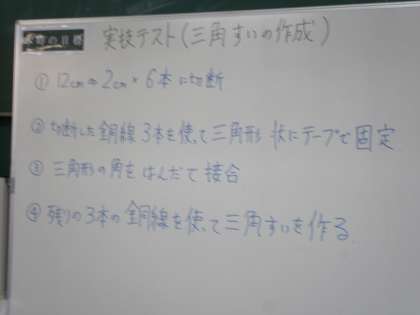 今時の目標 実技テスト(三角すいの作成)
① 12cm⇒2cm×6本に切断
② 切断した銅線3本を使って三角形状にテープで固定
③ 三角形の角をはんだで接合
④ 残りの3本の銅線を使って三角すいを作る